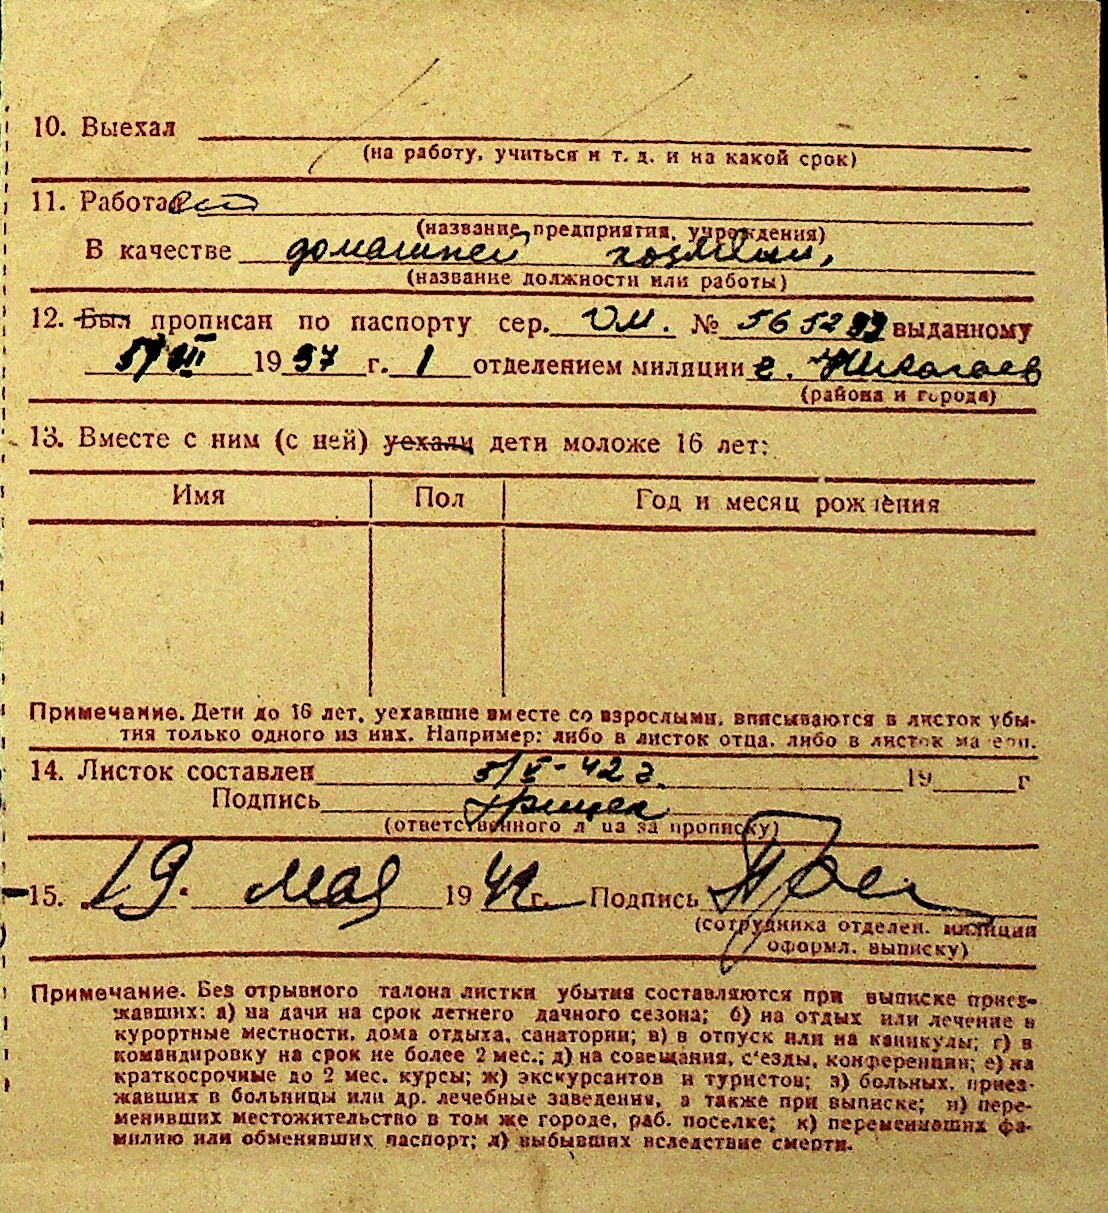 10. Выехал
(на работу, учиться и т. д. и на какой срок)
11. Работает
(название предприятия, учреждения)
В качестве домашней хозяйки,
(название должности или работы)
12. Был прописан по паспорту сер. УМ. № 565299 выданному
5/VIII 1937 г. 1 отделением милиции г. Николаев
(района и города)
13. Вместе с ним (с ней) уехали дети моложе 16 лет:
Имя Пол Год и месяц рождения
Примечание. Дети до 16 лет, уехавшие вместе со взрослыми, вписываются в листок убы-
тия только одного из них. Например: либо в листок отца, либо в листок матери.
14. Листок составлен 5/V-42 г. 19 г
Подпись
(ответственного лица за прописку)
15. 19. мая 1942 г. Подпись
(сотрудника отделен. милиции
оформл. выписку)
Примечание. Без отрывного талона листки убытия составляются при выписке приез-
жавших: а) на дачи на срок летнего дачного сезона; б) на отдых или лечение в
курортные местности, дома отдыха, санатории; в) в отпуск или на каникулы; г) в
командировку на срок не более 2 мес.; д) на совещания, с'езды, конференции; е) на
краткосрочные до 2 мес. курсы; ж) экскурсантов и туристов; з) больных, приез-
жавших в больницы или др. лечебные заведения, а также при выписке; и) пере-
менивших местожительство в том же городе, раб. поселке; к) переменивших фа-
милию или обменявших паспорт; л) выбывших вследствие смерти.